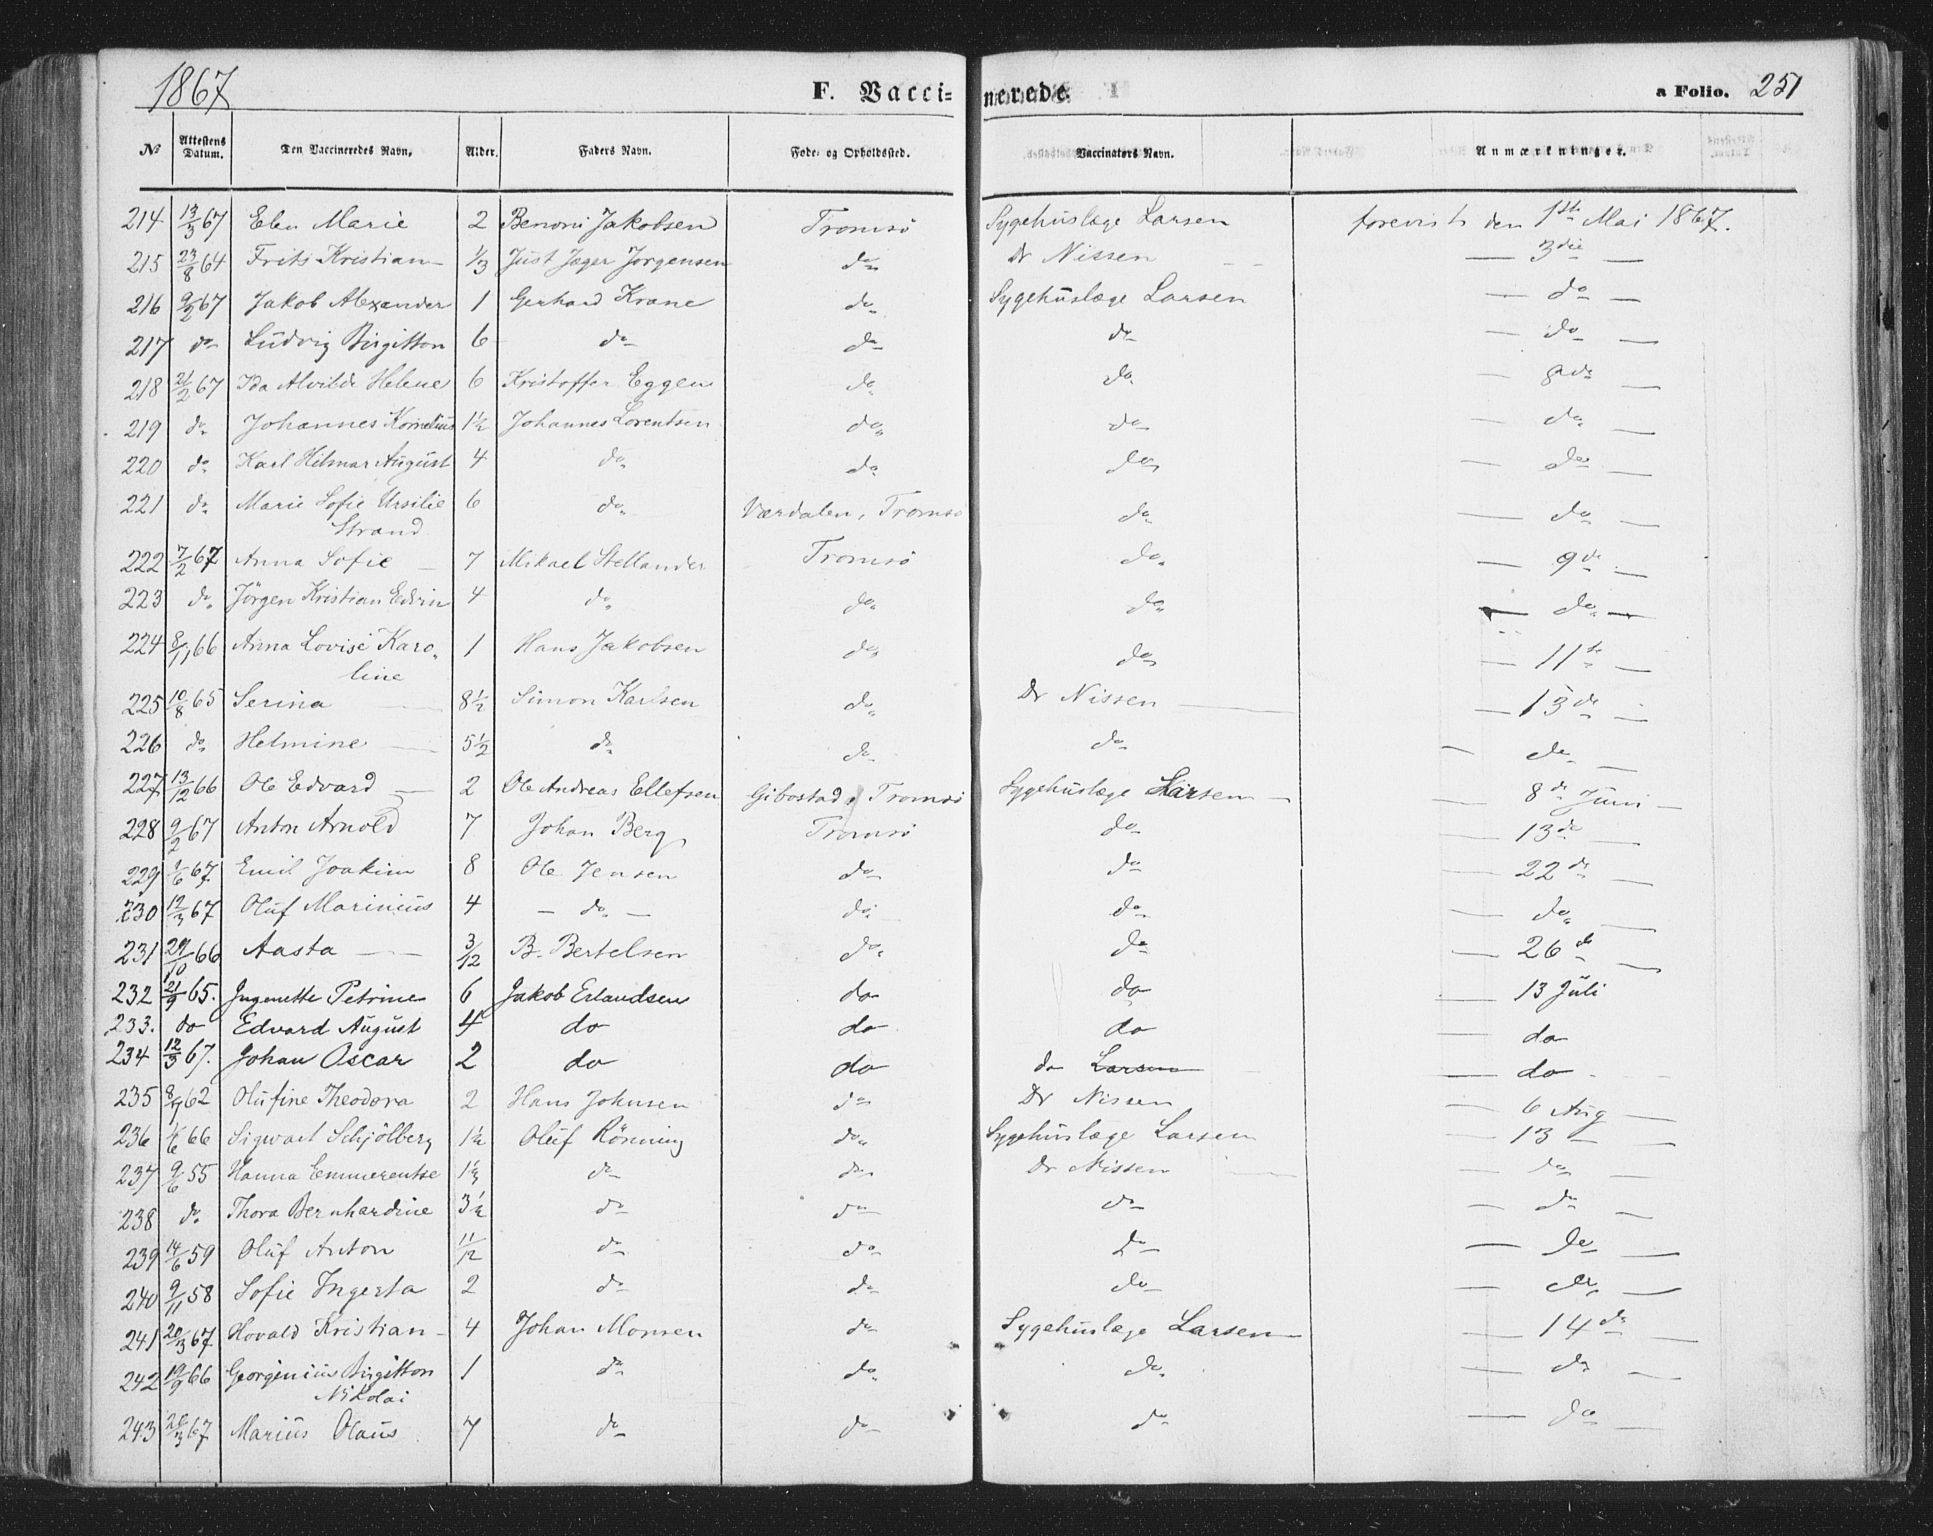 1867 F. Vaccinerede. a Folio. 251
№ Attestens Datum. Den Vaccineredes Navn. Alder. Faders Navn. Føde- og Opholdssted. Vaccinators Navn. Anmærkninger.
214 13/3 67 Elen Marie 2 Benoni Jakobsen Tromsø Sygehuslæge Larsen forevist den 1ste Mai 1867.
215 23/8 64 Frits Kristian 1/3 Just Jæger Jørgensen do Dr Nissen — 3die —
216 9/2 67 Jakob Alexander 1 Gerhard Krane do Sygehuslæge Larsen — do —
217 do Ludvig Birgitton 6 do do do — do —
218 21/2 67 Ida Alvilde Helene 6 Kristoffer Eggen do do — 8de —
219 do Johannes Kornelius 1½ Johannes Lorentsen do do — do —
220 do Karl Hilmar August 4 do do do — do —
221 do Marie Sofie Ursilie 6 do Værdalen, Tromsø do — do —
Strand
222 7/2 67 Anna Sofie — 7 Mikael Stellander Tromsø do — 9de —
223 do Jörgen Kristian Edvin 4 do do do — do —
224 8/11 66 Anna Lovise Karo- 1 Hans Jakobsen do do — 11te —
line
225 10/8 65 Serina — 8½ Simon Karlsen do Dr Nissen — 13de —
226 do Helmine — 5½ do do do — do —
227 13/12 66 Ole Edvard — 2 Ole Andreas Ellefsen Gibostad, Tromsø Sygehuslæge Larsen — 8de Juni —
228 9/2 67 Anton Arnold 7 Johan Berg Tromsø do — 13de —
229 1/6 67 Emil Joakim 8 Ole Jensen do do — 22de —
230 12/3 67 Oluf Marinius 4 — do — do do — do —
231 29/10 66 Aasta — 3/12 B. Bertelsen do do — 26de —
232 21/9 65. Ingenette Petrine 6 Jakob Erlandsen do do — 13 Juli
233. do Edvard August 4 do do do — do
234 12/3 67. Johan Oscar 2 do do do Larsen — do
235 8/11 62 Olufine Theodora 2 Hans Johnsen do Dr Nissen — 6 Aug —
236 1/6 66 Sigwart Schjölberg 1½ Oluf Rönning do Sygehuslæge Larsen — 13 —
237 9/6 55 Hanna Emmerentse 1⅓ do do Dr Nissen — do —
238 do Thora Bernhardine 3½ do do do — do —
239 14/6 59 Oluf Anton 11/12 do do do — do —
240 9/11 58 Sofie Ingerta 2 do do do — do —
241 20/3 67 Hovald Kristian 4 Johan Monsen do Sygehuslæge Larsen — 14de —
242 19/9 66 Georginius Birgitton 1 do do do — do —
Nikolai
243 20/3 67 Marius Olaus 7 do do do — do —